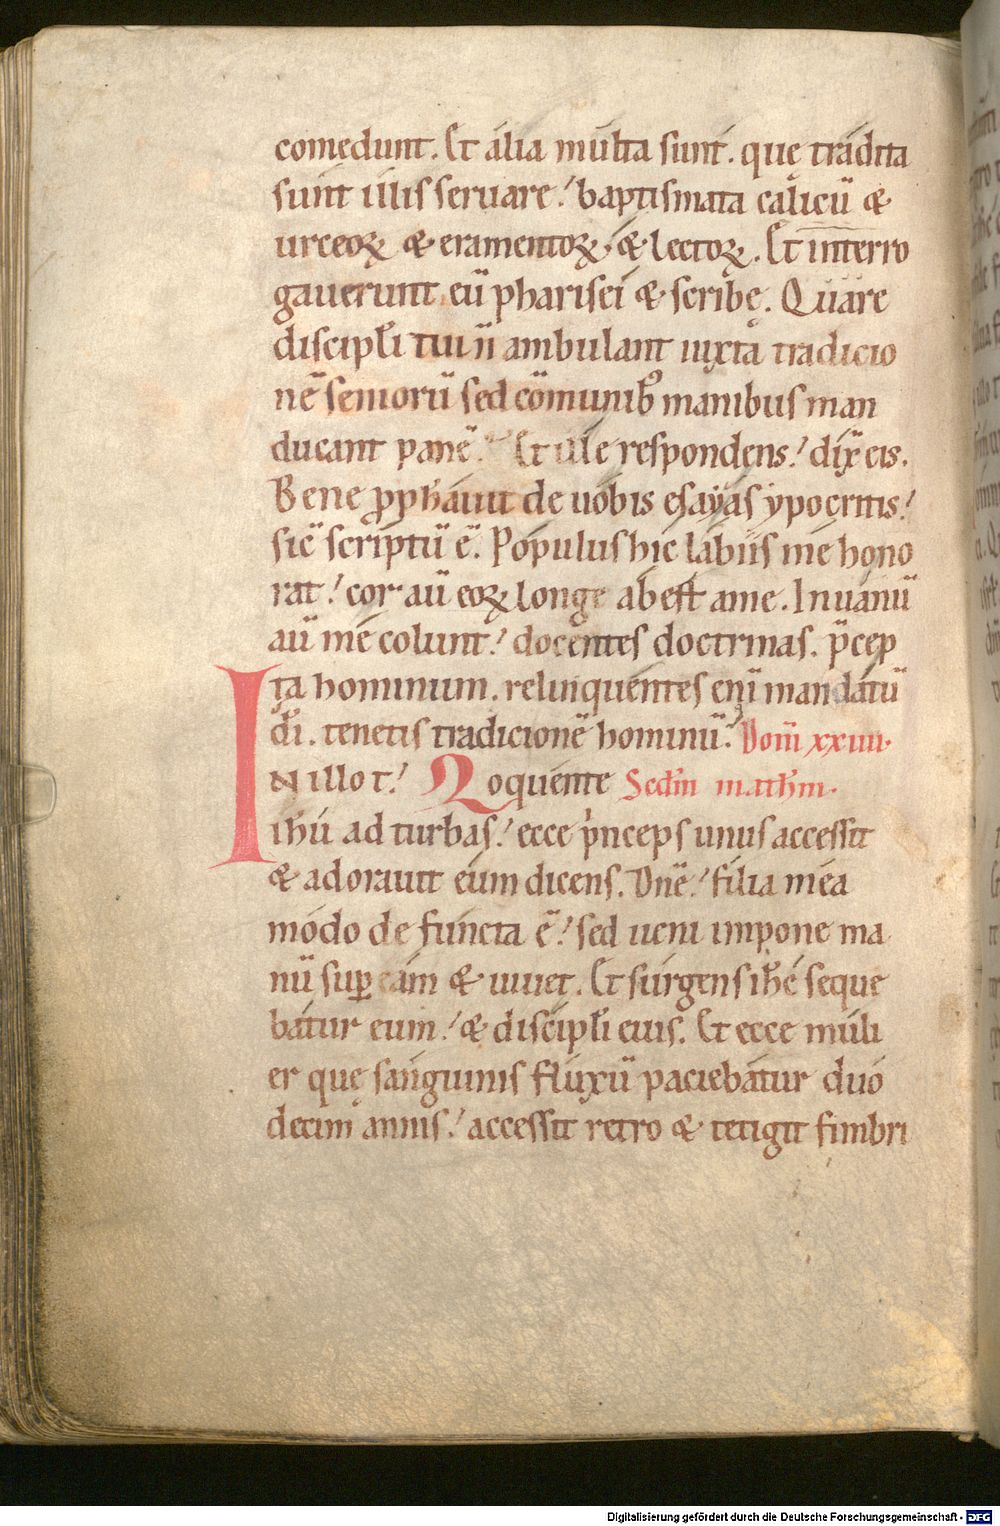 comedunt. Et alia multa sunt. que tradita
sunt illis seruare! baptismata calicū &
urceoꝝ & eramentoꝝ. & lectoꝝ. Et interro
gauerunt eū pharisei & scribę. Quare
discipl̄i tui n̄ ambulant iuxta tradicio
nē seniorū sed cōmunibꝰ manibus man
ducant panē. Et ille respondens! dix̄ eis.
Bene ꝓph̄auit de uobis esayas ypocritis!
sic̄ scriptū ē. Populus hic labiis me hono
rat! cor aū eoꝝ longe abest a me. In uanū
aū me colunt! docentes doctrinas. p̄cep
ta hominum. relinquentes eni mandatū
dī. tenetis tradicionē hominū. Dom̄ xxiiii.
IN illo t! Loquente Scd̄m math̄m.
ih̄u ad turbas! ecce princeps unus accessit
& adorauit eum dicens. Dn̄e! filia mea
modo de functa ē! sed ueni impone ma
nū suꝑ eam & uiuet. Et surgens ih̄c seque
batur eum! & discipl̄i eius. Et ecce muli
er quę sanguinis fluxū paciebatur duo
decim annis! accessit retro & tetigit fimbri
Digitalisierung gefördert durch die Deutsche Forschungsgemeinschaft - DFG